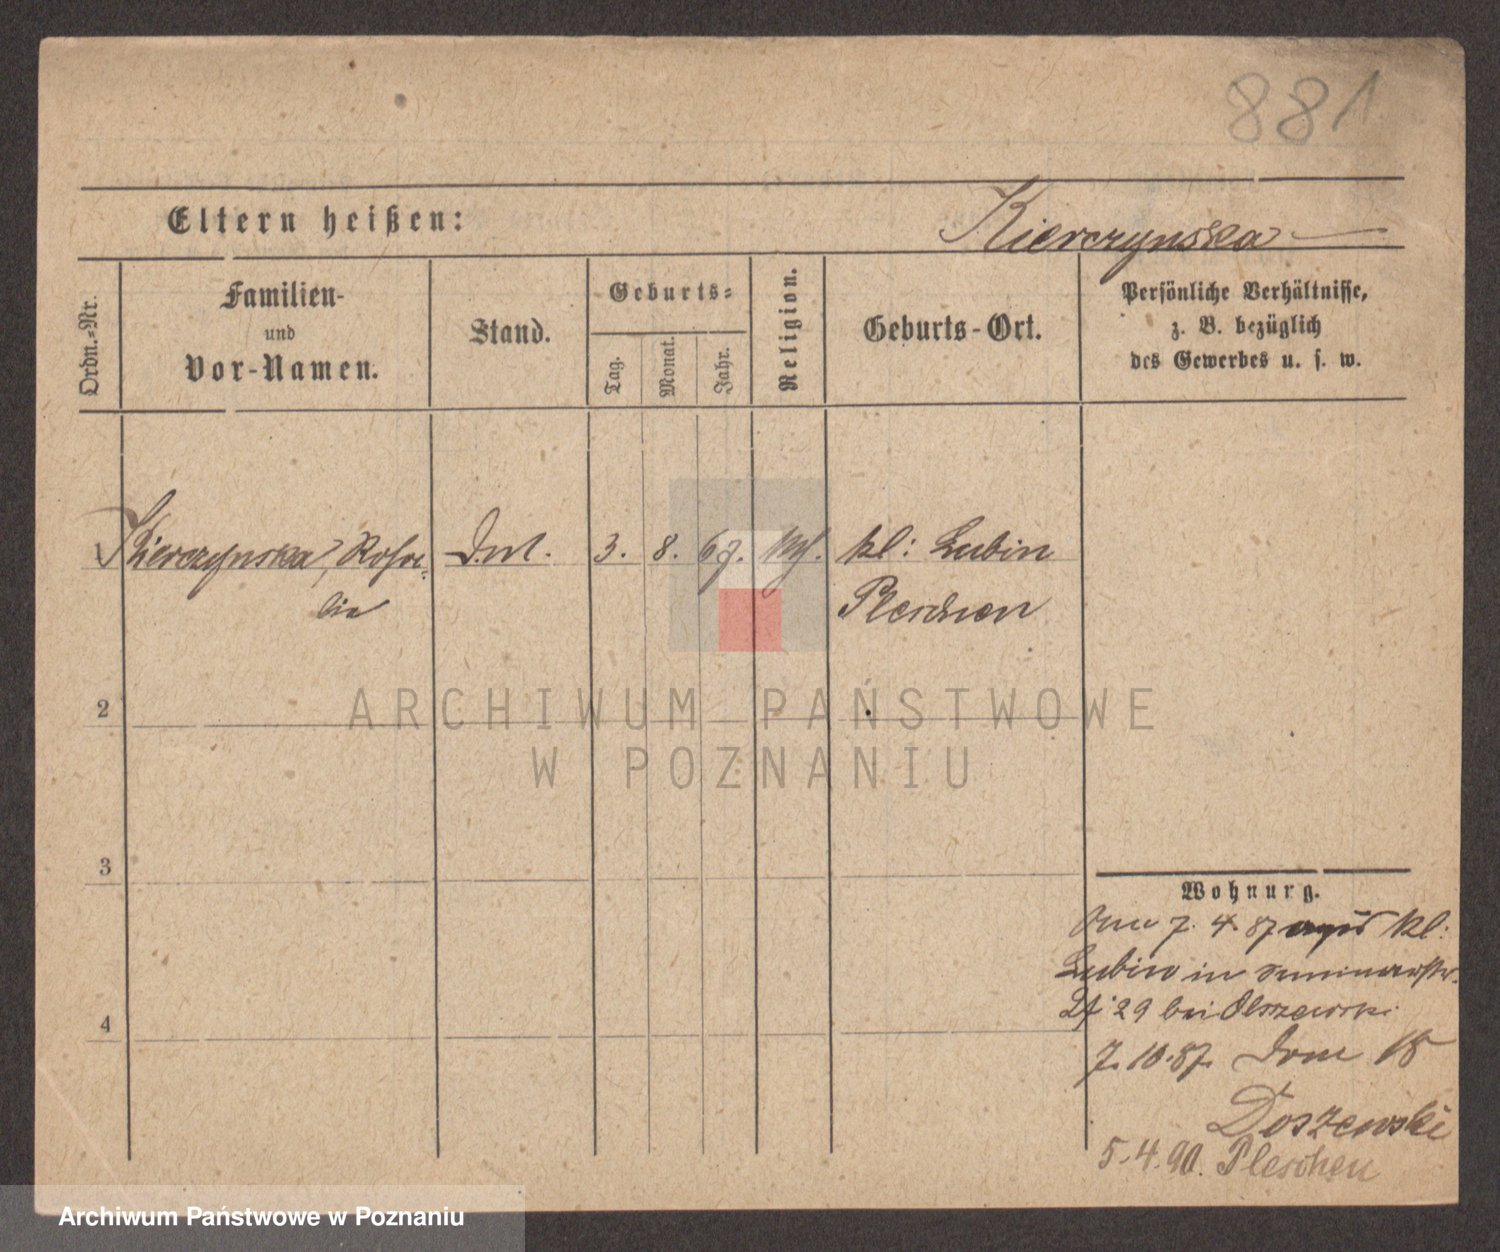 881
Eltern heißen:
Kierczynska
Ordn.-Nr.
Familien-
und
Vor-Namen.
Stand.
Geburts-
Tag.
Monat.
Jahr.
Religion.
Geburts-Ort.
Persönliche Verhältnisse,
z. B. bezüglich
des Gewerbes u. s. w.
1 Kierczynska, Rosa- 3. 8. 67. kl: Lubin
lie Pleschen
2
ARCHIWUM PAŃSTWOWE
W POZNANIU
3
4
Wohnung.
7. 4. 87 kl:
Lubin in
29 bei Olszewski
7. 10. 87. Dom 18
Doszewski
5.4.90. Pleschen
Archiwum Państwowe w Poznaniu